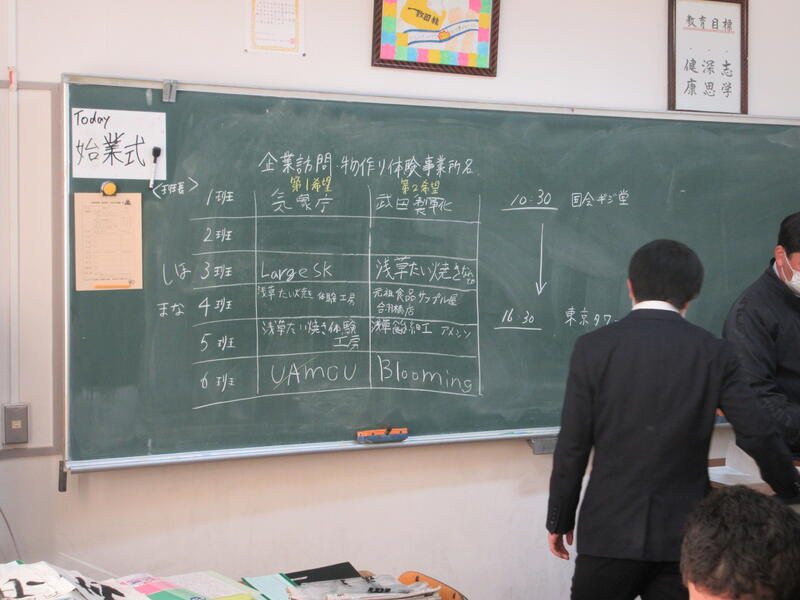 教育目標
志学
深思
健康
Today
始業式
企業訪問・物作り体験事業所名
<班長>
第1希望 第2希望
1班 気象庁 武田製靴
2班
しほ 3班 Large SK 浅草たい焼き
まな 4班 浅草たい焼き体験工房 元祖食品サンプル屋
合羽橋店
5班 浅草たい焼き体験
工房 浅草飴細工 アメシン
6班 UAMOU Blooming
10:30 国会ギジ堂
16:30 東京タワ